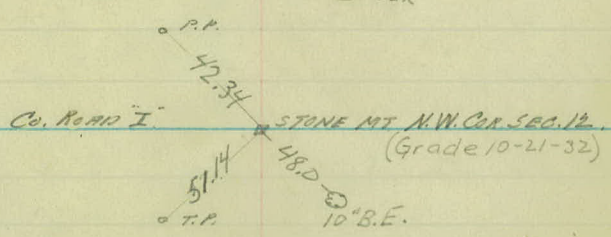 P.P.
42.34
Co. ROAD "I" STONE MT N.W. COR. SEC. 12.
(Grade 10-21-32)
51.14 48.0
T.P. 10" B.E.